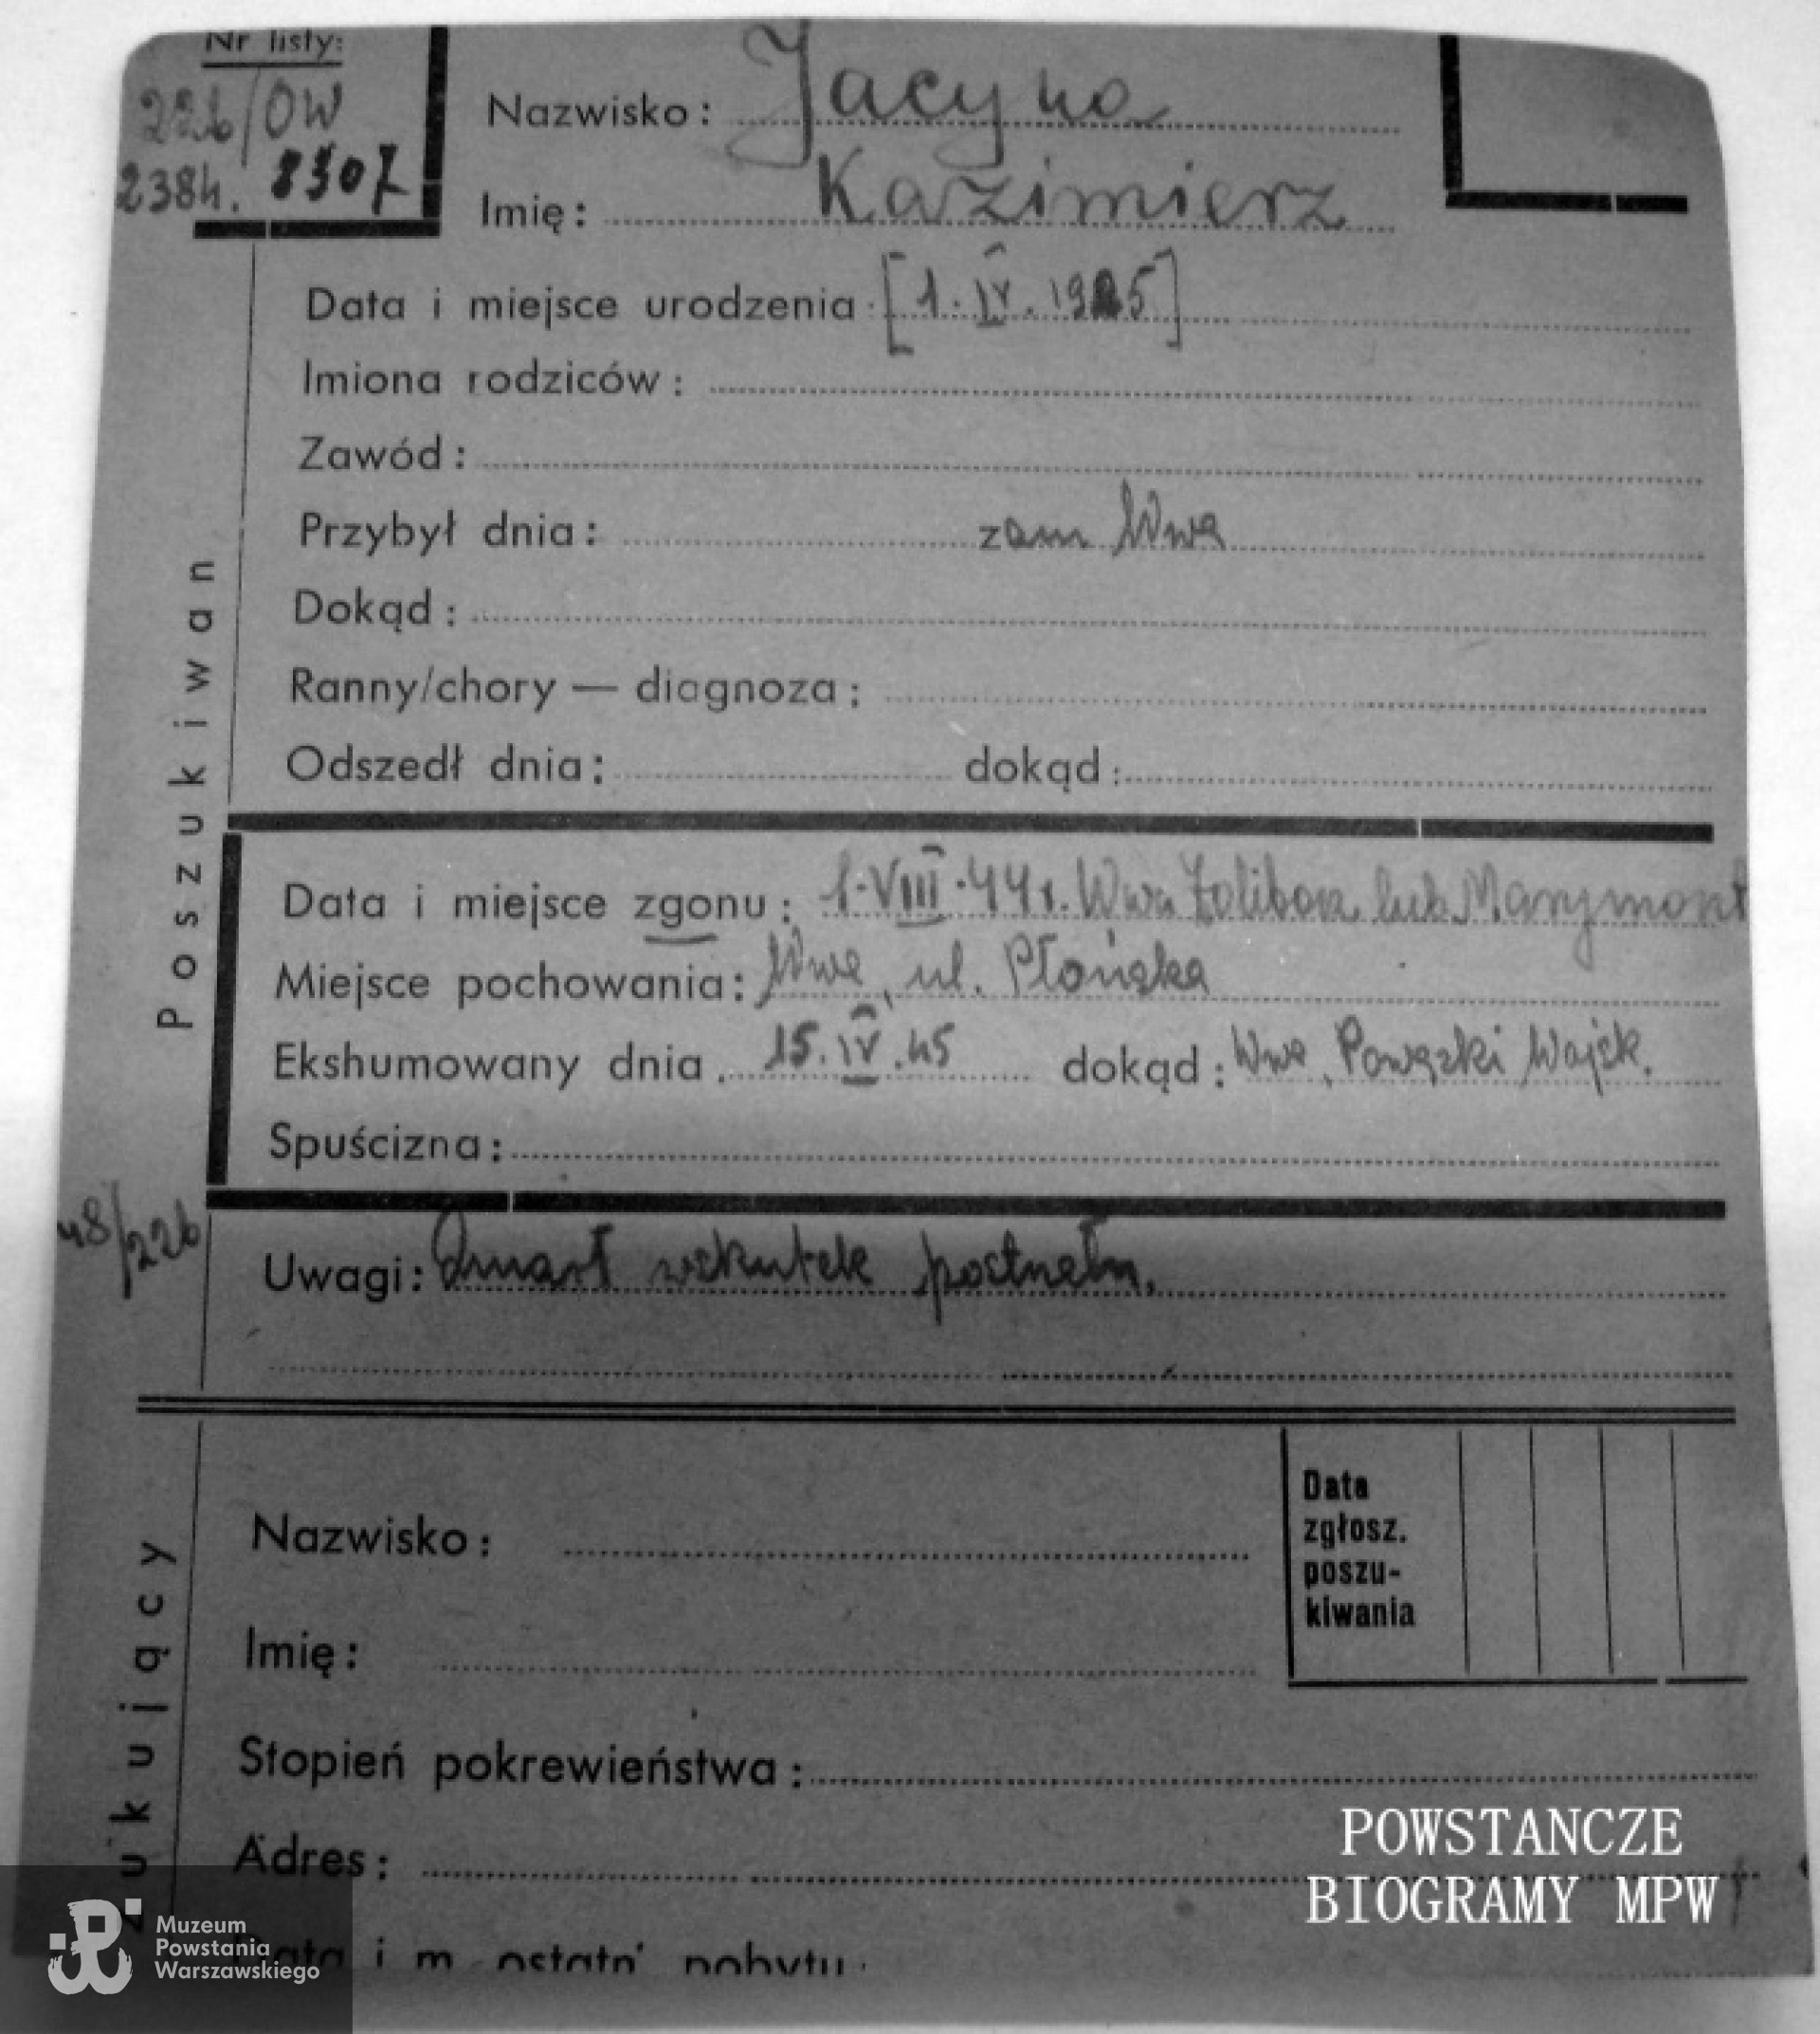 Nr listy:
226/OW
2384. 8307
Nazwisko: Jacyna
Imię: Kazimierz
Data i miejsce urodzenia [1.IV.1925]
Imiona rodziców:
Zawód:
Przybył dnia: zam Wwa
Dokąd:
Ranny/chory — diagnoza:
Odszedł dnia: dokąd:
Poszukiwan
Data i miejsce zgonu: 1.VIII.44r. Wwa Żoliborz lub Marymont
Miejsce pochowania: Wwa, ul. Płońska
Ekshumowany dnia 15.IV.45 dokąd: Wwa, Powązki Wojsk.
Spuścizna:
48/226
Uwagi: Zmarł wskutek postrzału.
Nazwisko:
Data
zgłosz.
poszu-
kiwania
Imię:
Stopień pokrewieństwa:
Adres:
ukujący
Data i m ostatn pobytu
POWSTANCZE
BIOGRAMY MPW
Muzeum
Powstania
Warszawskiego